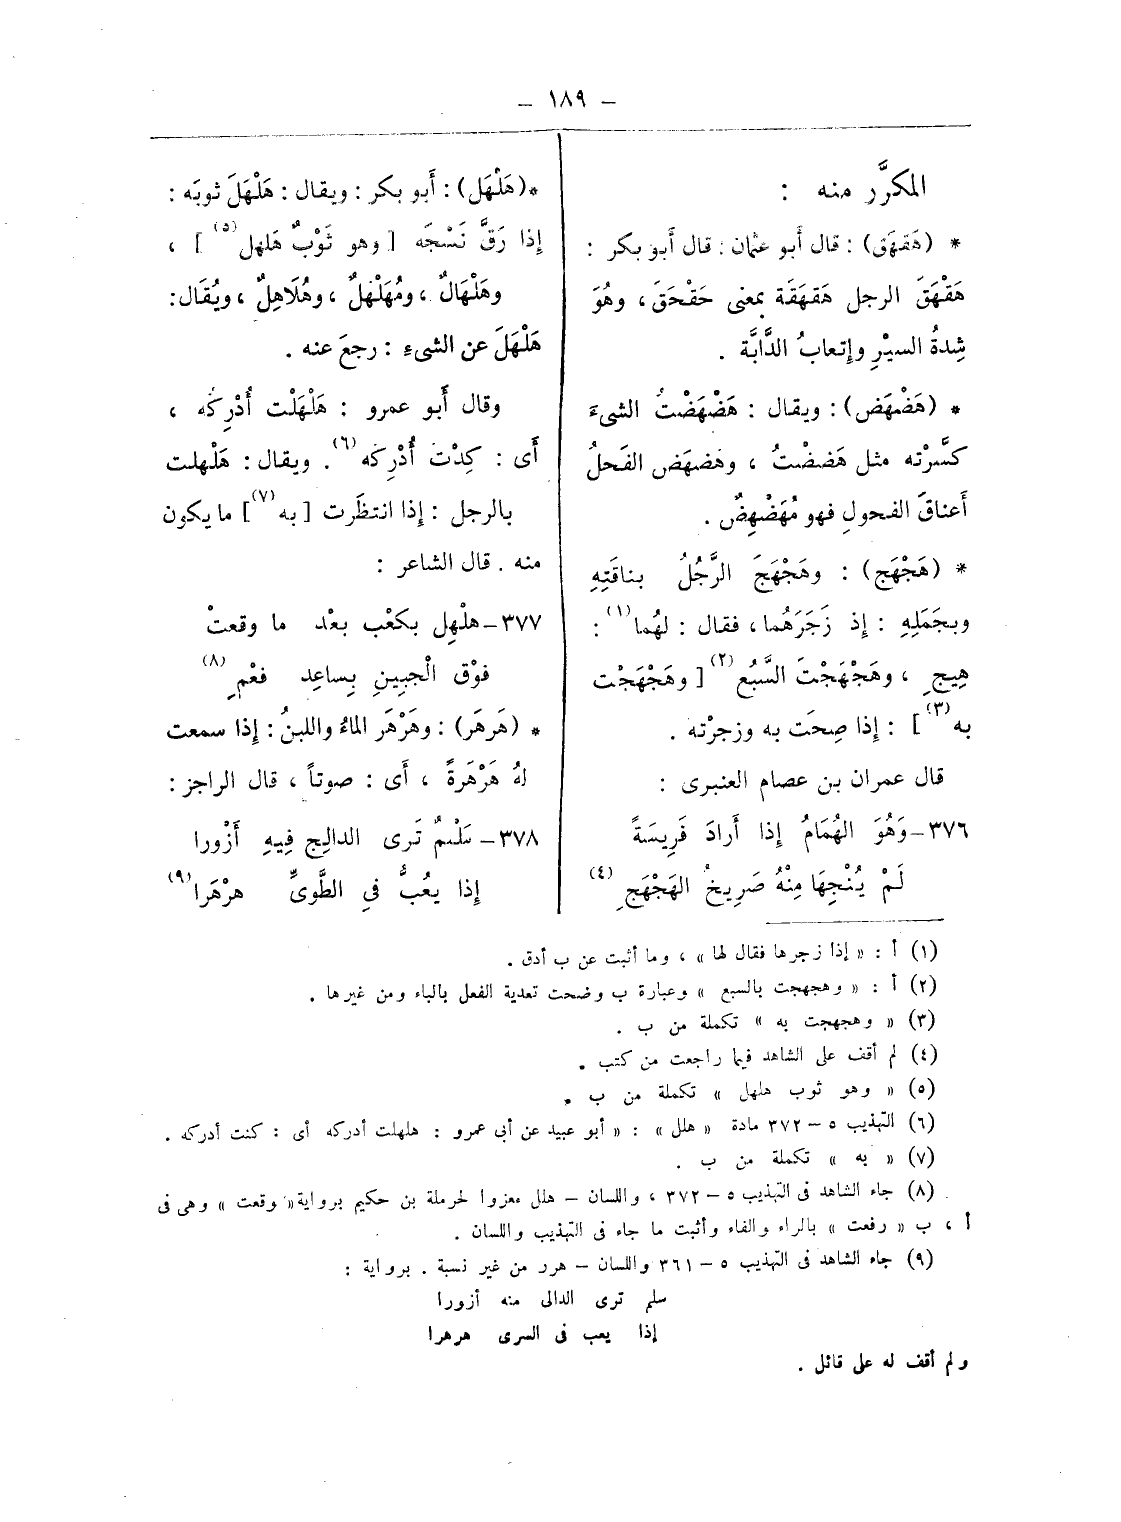 – ١٨٩ –
المكرَّر منه :
* (هَقهَق) : قال أَبو عثمان : قال أَبو بكر :
هَقْهَقَ الرجل هَقهَقَة بمعنى حَقْحَقَ ، وهُوَ
شِدةُ السيْرِ وإِتعابُ الدَّابَّة .
* (هَضْهَض) : ويقال : هَضْهَضْتُ الشىءَ
كسَّرْته مثل هَضضْتُ ، وهَضهَض الفَحلُ
أَعناقَ الفحولِ فهو مُهَضْهِضٌ .
* (هَجْهَج) : وهَجْهَجَ الرَّجُلُ بناقَتِهِ
وبجَمَلِهِ : إِذ زَجَرَهُما ، فقال : لهُما (١) :
هِيجِ ، وهَجْهَجْتَ السَّبُع (٢) [ وهَجْهَجْت
به (٣) ] : إِذا صِحتَ به وزجرْته .
قال عمران بن عصام العنبرى :
٣٧٦– وَهُوَ الهُمَامُ إِذا أَرادَ فَرِيسَةً
لَمْ يُنْجِهَا مِنْهُ صَرِيخُ الهَجْهَجِ (٤)
*(هَلْهَل) : أَبو بكر : ويقال : هَلْهَلَ ثوبَه :
إِذا رَقَّ نَسْجَه [ وهو ثَوْبٌ هَلهل (٥) ] ،
وهَلْهَالٌ ، ومُهَلْهَلٌ ، وهُلَاهِلٌ ، ويُقَال :
هَلْهَلَ عن الشىءِ : رجعَ عنه .
وقال أَبو عمرو : هَلْهَلْت أُدْرِكُه ،
أَى : كِدْت أُدْرِكه (٦) . ويقال : هَلْهلت
بالرجل : إِذا انتظَرت [ به (٧) ] ما يكون
منه . قال الشاعر :
٣٧٧– هلْهِل بكعْب بعْد ما وقعتْ
فوْق الْجبِينِ بِساعِد فعْمِ (٨)
* (هَرهَر) : وهَرْهَر الماءُ واللبنُ : إِذا سمعت
لهُ هَرْهَرةً ، أَى : صوتاً ، قال الراجز :
٣٧٨– سَلْمٌ تَرى الدالِج فِيهِ أَزْورا
إِذا يعُبُّ فِي الطَّوىِّ هرْهَرا (٩)
(١) أ : « إذا زجرها فقال لها » ، وما أثبت عن ب أدق .
(٢) أ : « وهجهجت بالسبع » وعبارة ب وضحت تعدية الفعل بالباء ومن غيرها .
(٣) « وهجهجت به » تكملة من ب .
(٤) لم أقف على الشاهد فيما راجعت من كتب .
(٥) « وهو ثوب هلهل » تكملة من ب .
(٦) التهذيب ٥ – ٣٧٢ مادة « هلل » : « أبو عبيد عن أبى عمرو : هلهلت أدركه أى : كنت أدركه .
(٧) « به » تكملة من ب .
(٨) جاء الشاهد فى التهذيب ٥ – ٣٧٢ ، واللسان – هلل معزوا لحرملة بن حكيم برواية « وقعت » وهى فى
أ ، ب « رفعت » بالراء والفاء وأثبت ما جاء فى التهذيب واللسان .
(٩) جاء الشاهد فى التهذيب ٥ – ٣٦١ واللسان – هرر من غير نسبة . برواية :
سلم ترى الدالى منه أزورا
إذا يعب فى السرى هرهرا
ولم أقف له على قائل .